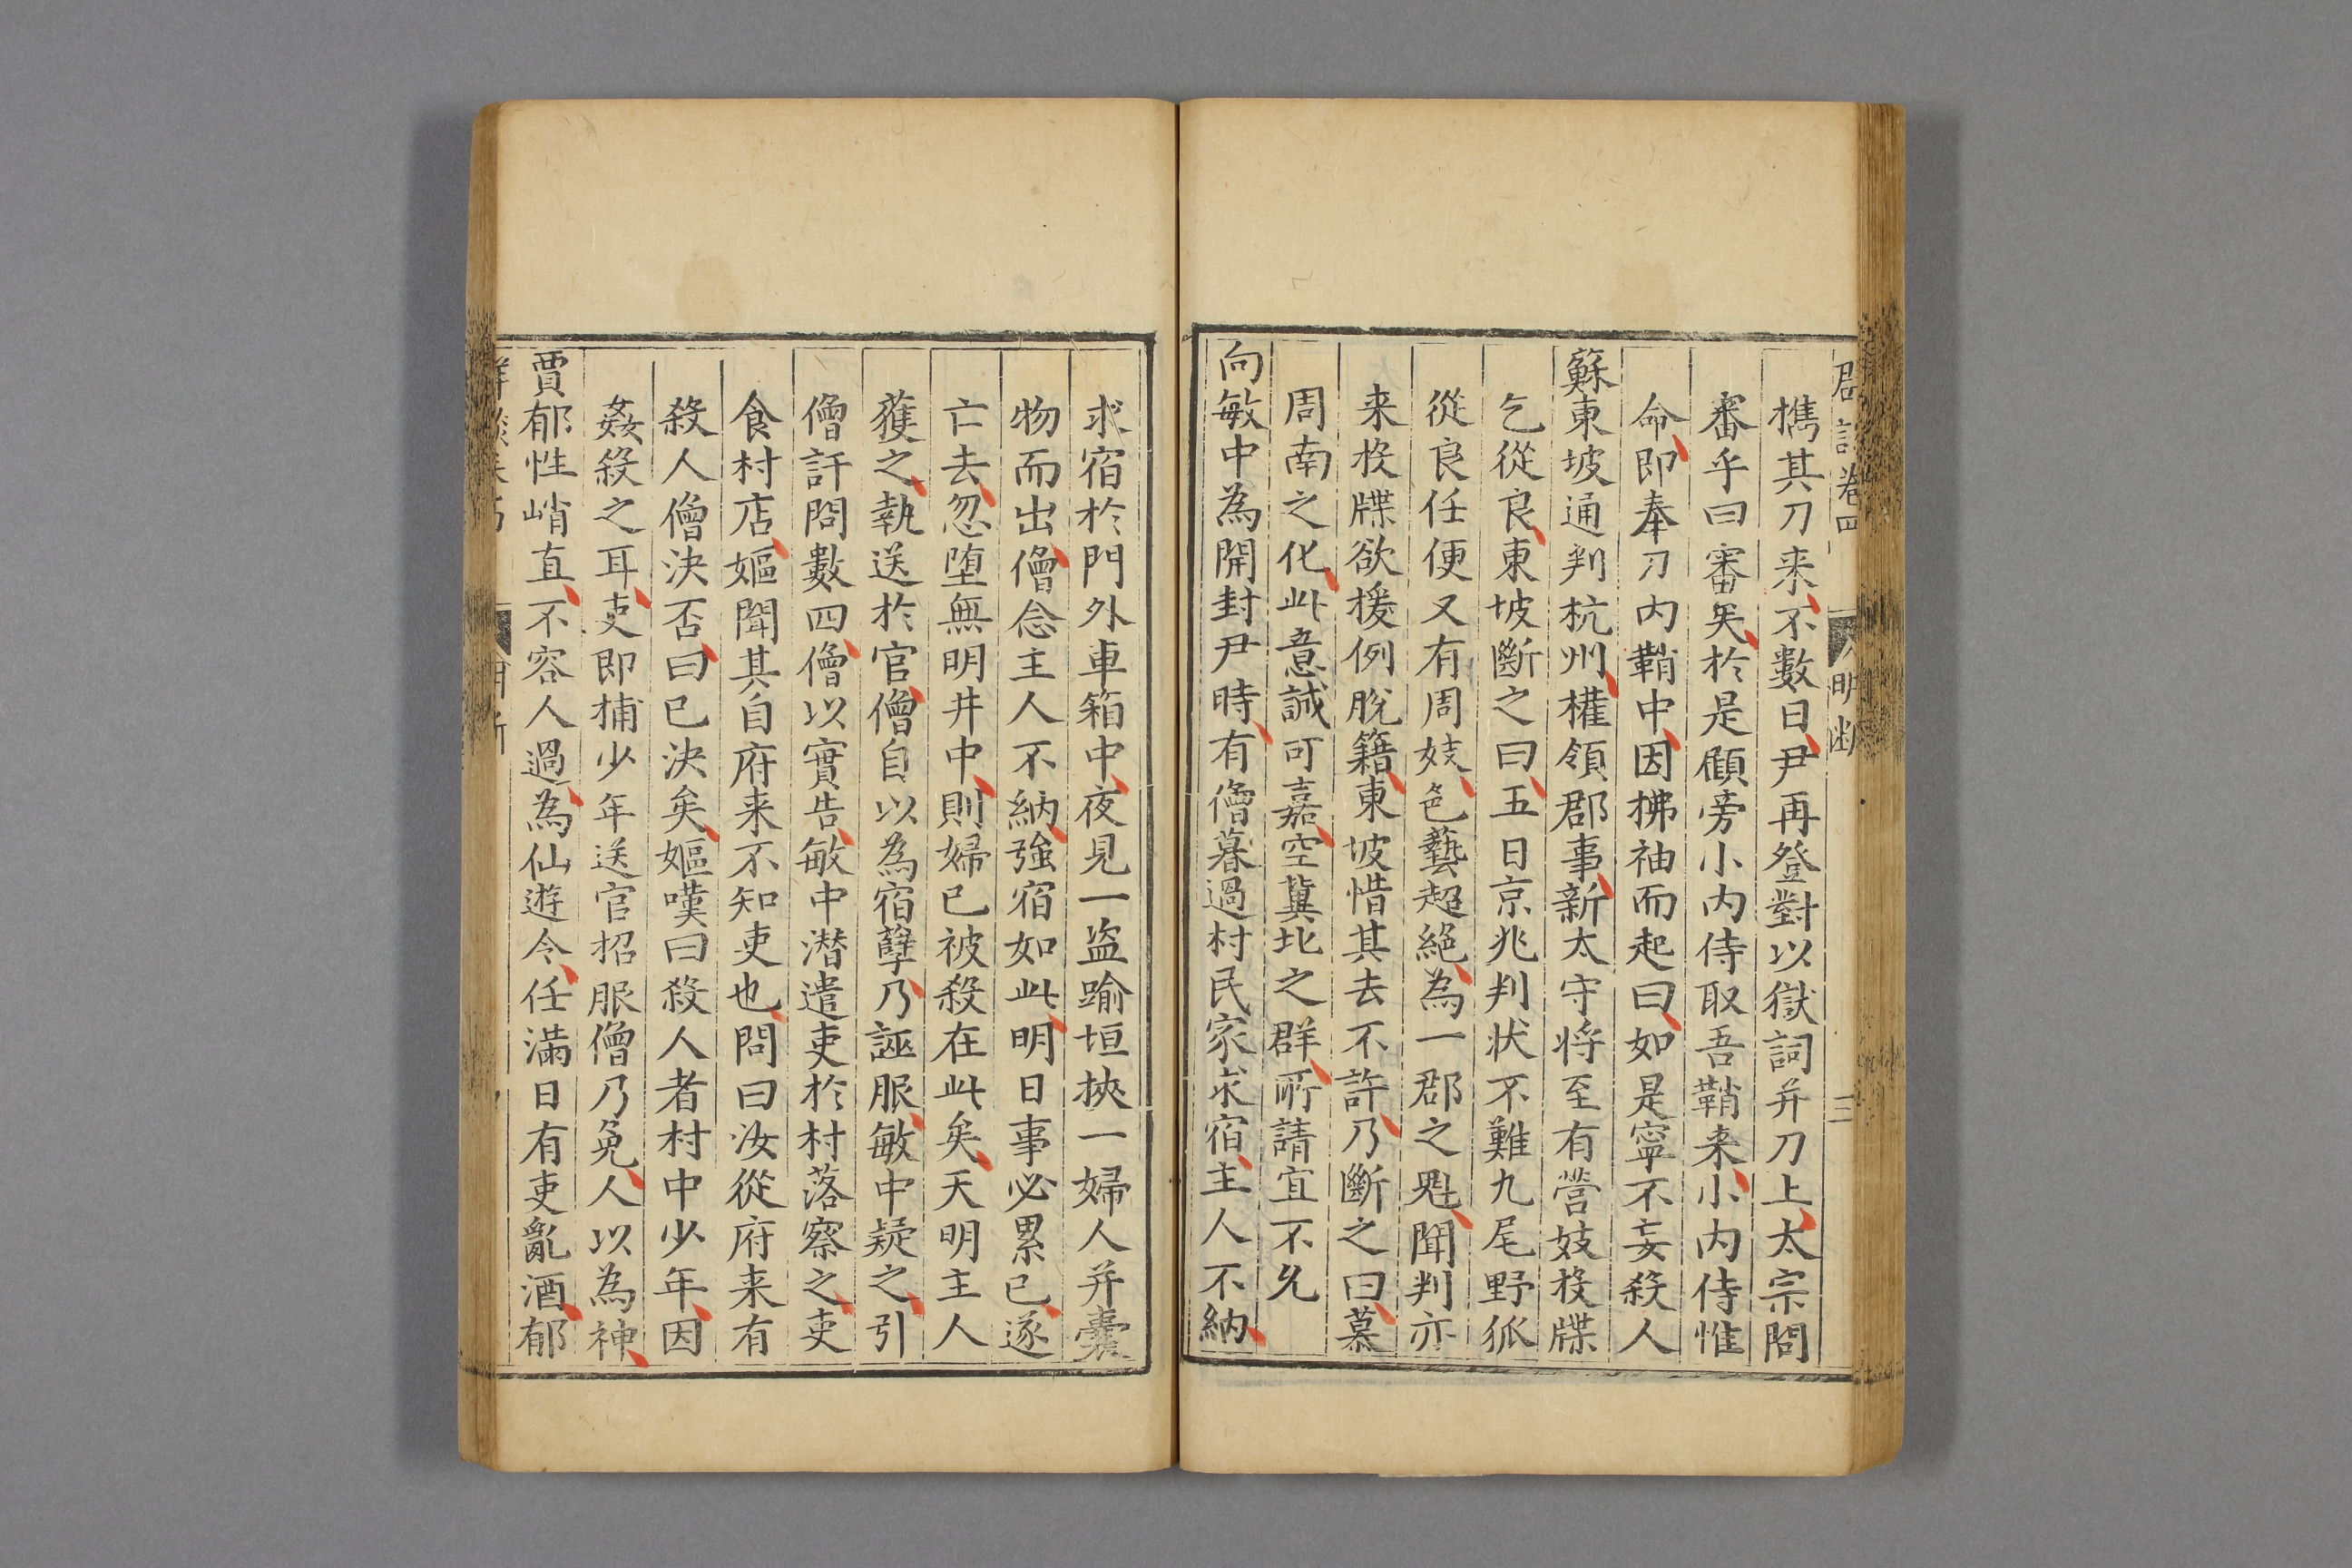 攜其刀来不數日尹再登對以獄詞并刀上太宗問
審乎曰審矣於是顧旁小内侍取吾鞘来小内侍惟
命即奉刀内鞘中因拂袖而起曰如是寧不妄殺人
蘇東坡通判杭州權領郡事新太守将至有營妓投牒
乞從良東坡斷之曰五日京兆判状不難九尾野狐
從良任便又有周妓色藝超絕為一郡之魁聞判亦
来投牒欲援例脫籍東坡惜其去不許乃斷之曰慕
周南之化此意誠可嘉空冀北之群所請宜不允
向敏中為開封尹時有僧暮過村民家求宿主人不納
求宿於門外車箱中夜見一盗踰垣挾一婦人并囊
物而出僧念主人不納強宿如此明日事必累已遂
亡去忽堕無明井中則婦已被殺在此矣天明主人
獲之執送於官僧自以為宿孽乃誣服敏中疑之引
僧訐問數四僧以實告敏中潛遣吏於村落察之吏
食村店嫗聞其自府来不知吏也問曰汝從府来有
殺人僧決否曰已決矣嫗嘆曰殺人者村中少年因
姦殺之耳吏即捕少年送官招服僧乃免人以為神
賈郁性峭直不容人過為仙遊令任滿日有吏亂酒郁